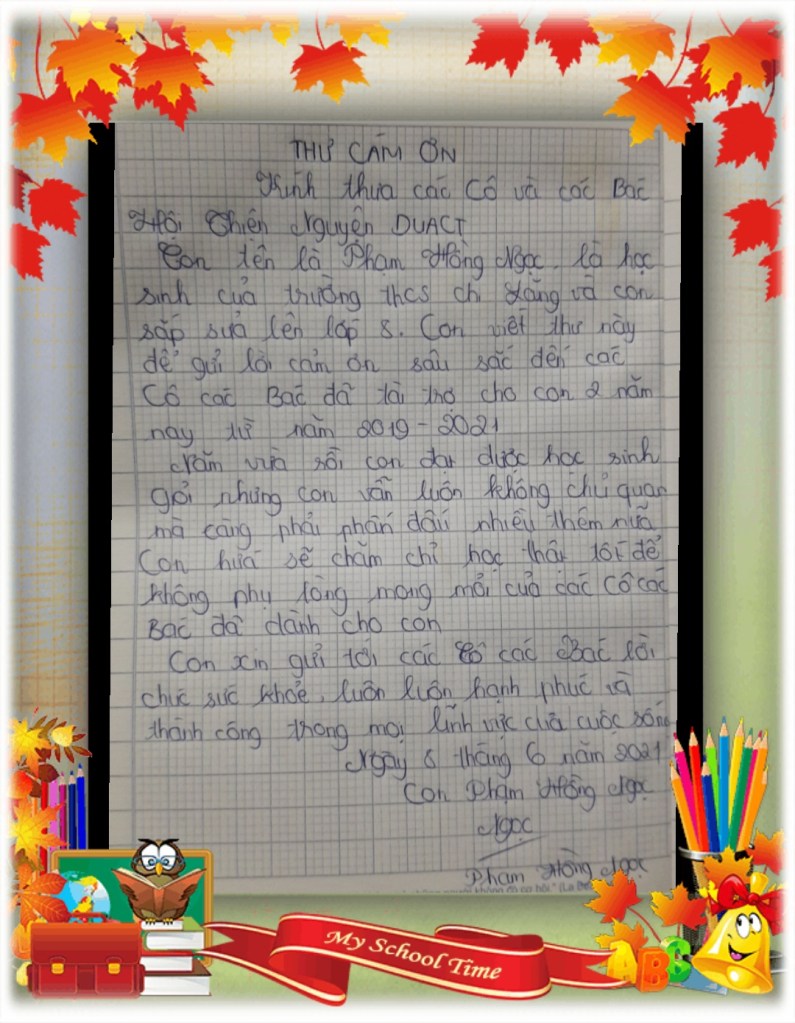 THƯ CẢM ƠN
Kính thưa các Cô và các Bác
Hội Thiện Nguyện DUACT
Con tên là Phạm Hồng Ngọc, là học
sinh của trường thcs chi Lăng và con
sắp sửa lên lớp 8. Con viết thư này
để gửi lời cảm ơn sâu sắc đến các
Cô các Bác đã tài trợ cho con 2 năm
nay từ năm 2019 - 2021
Năm vừa rồi con đạt được học sinh
giỏi nhưng con vẫn luôn không chủ quan
mà càng phải phấn đấu nhiều thêm nữa
Con hứa sẽ chăm chỉ học thật tốt để
không phụ lòng mong mỏi của các Cô các
Bác đã dành cho con
Con xin gửi tới các Cô các Bác lời
chúc sức khỏe, luôn luôn hạnh phúc và
thành công trong mọi lĩnh vực của cuộc sống
Ngày 6 tháng 6 năm 2021
Con Phạm Hồng Ngọc
Ngọc
Phạm Hồng Ngọc
My School Time
ABC